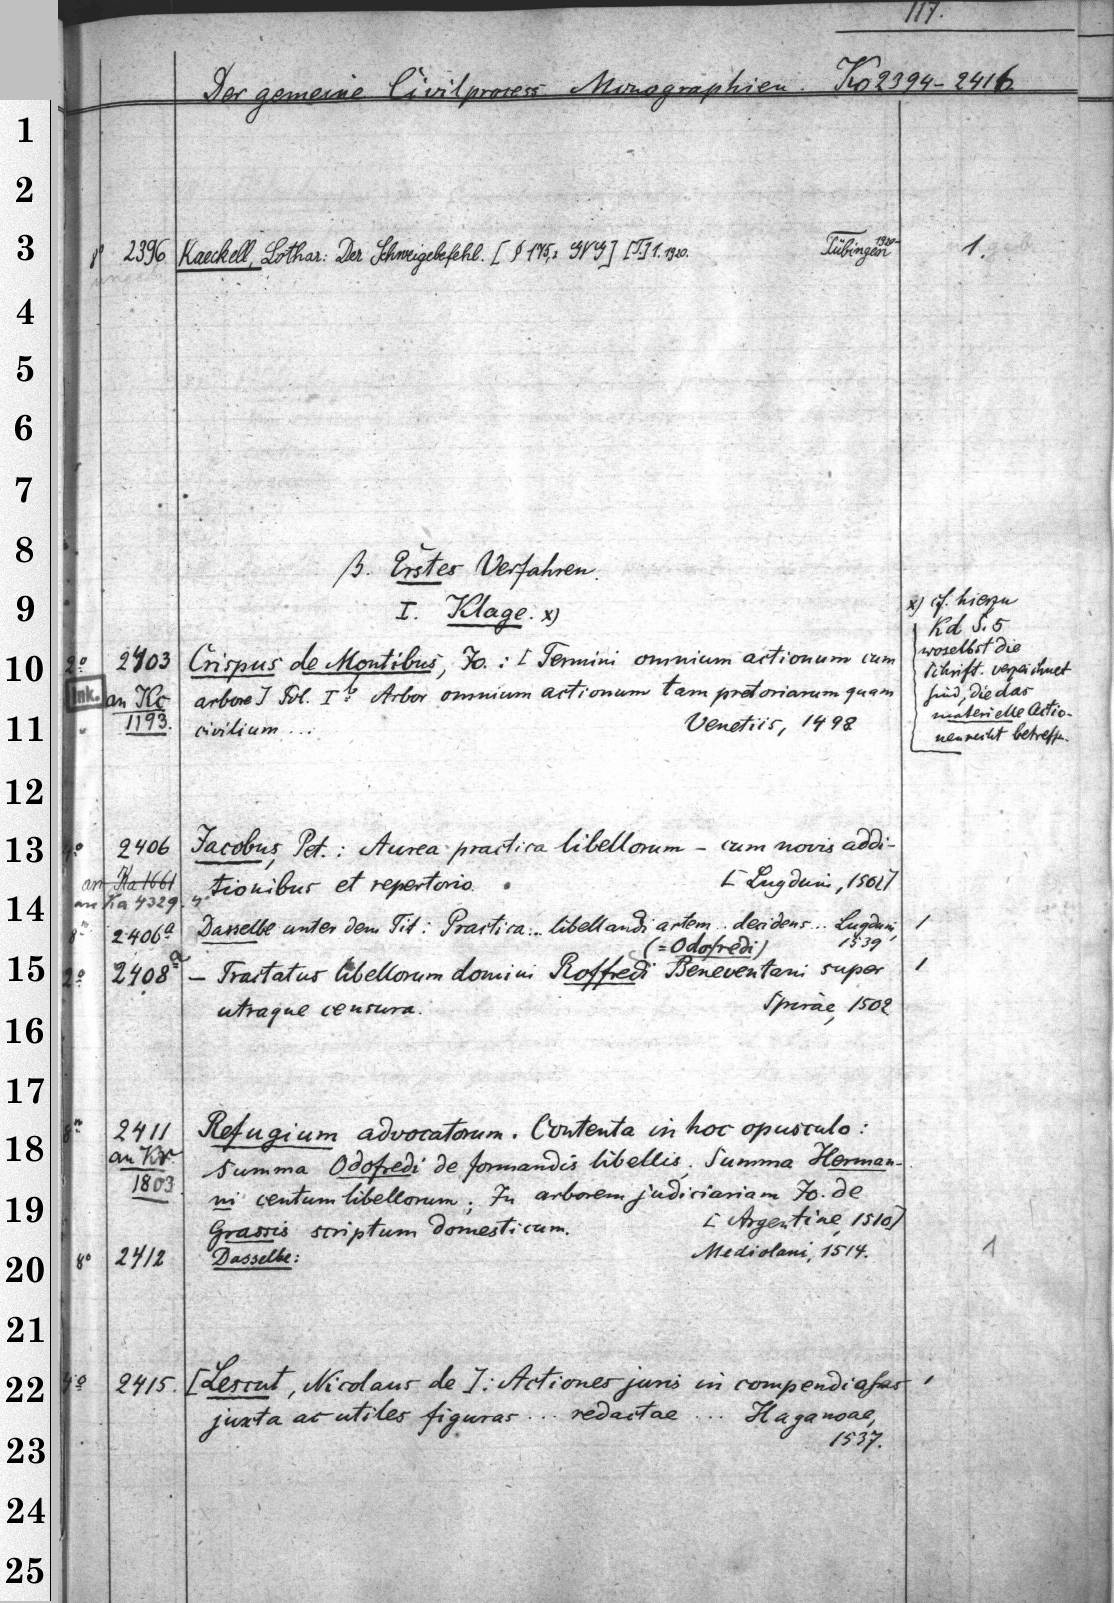 117.
Der gemeine Civilprocess Monographien. Ko 2394-2416
8° 2396 Kaeckell, Lothar: Der Schweigebefehl. [§ 175,2 GVG] [T.] 1. 1920. Tübingen 1920- 1.
β. Erstes Verfahren.
I. Klage. x)
x) cf. hierzu
Kd S. 5
woselbst die
Schrift. verzeichnet
sind, die das
materielle Actio-
nenrecht betreffen.
2° 2403 Crispus de Montibus, Jo.: [Termini omnium actionum cum
Ink. an Kc arbore] Fol. Ib: Arbor omnium actionum tam pretorianum quam
1193. civilium ... Venetiis, 1498
4° 2406 Jacobus, Pet.: Aurea practica libellorum - cum novis addi-
an Ka 1661 tionibus et repertorio. [Lugduni, 1502]
an Ka 4329.
8° 2406a Dasselbe unter dem Tit: Practica... libellandi artem.. decidens... Lugduni, 1539 1
(= Odofredi)
2° 2408a - Tractatus libellorum domini Roffredi Beneventani super 1
utraque censura. Spirae, 1502
8° 2411 Refugium advocatorum. Contenta in hoc opusculo:
an Kr. Summa Odofredi de formandis libellis. Summa Herman-
1803 ni centum libellorum; In arborem judiciariam Jo. de
Grassis scriptum domesticum. [Argentine, 1510]
8° 2412 Dasselbe: Mediolani, 1514. 1
4° 2415. [Lescut, Nicolaus de]: Actiones juris in compendiosas 1
juxta ac utiles figuras ... redactae ... Haganoae,
1537.
1
2
3
4
5
6
7
8
9
10
11
12
13
14
15
16
17
18
19
20
21
22
23
24
25